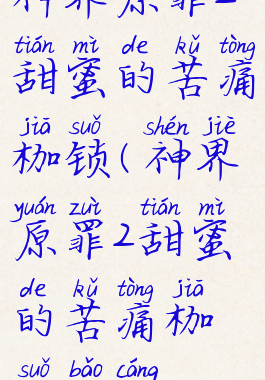 神界原罪2
tián mì de kǔ tòng
甜蜜的苦痛
jiā suǒ shén jiè
枷锁(神界
yuán zuì tián mì
原罪2甜蜜
de kǔ tòng jiā
的苦痛枷
suǒ bǎo cáng